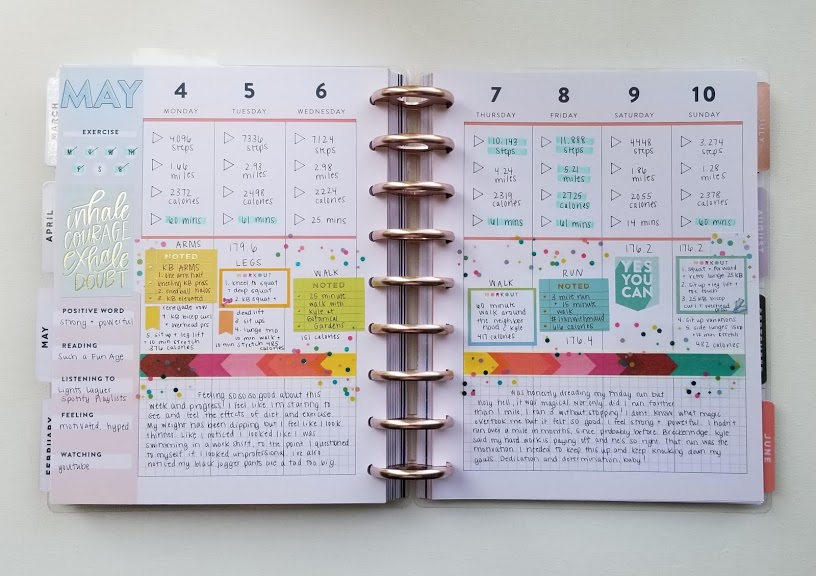 MARCH
APRIL
MAY
FEBRUARY
MAY
EXERCISE
M T W TH
F S S
inhale
COURAGE
exhale
DOUBT
POSITIVE WORD
strong + powerful
READING
Such a Fun Age
LISTENING TO
Lights Laquer
Spotify Playlists
FEELING
motivated, hyped
WATCHING
youtube
4
MONDAY
4096
steps
1.66
miles
2372
calories
60 mins
ARMS
NOTED
KB ARMS
2. kneeling KB pass
3. medball halos
4. KB elevated
renegade row
+ overhead prs
5. sit up + leg lift
+ 10 min stretch
376 calories
5
TUESDAY
7336
steps
2.93
miles
2498
calories
61 mins
179.6
LEGS
WORKOUT
1. kneel to squat
+ deep squat
2. KB squat +
deadlift
3. sit ups
4. lunge trip
10 min walk +
10 min stretch 485
calories
6
WEDNESDAY
7124
steps
2.98
miles
2224
calories
25 mins
WALK
NOTED
25 minute
walk with
kyle at
Botanical
Gardens
151 calories
Feeling so so so good about this
week and progress! I feel like I'm starting to
see and feel the effects of diet and exercise.
My weight has been dipping but I feel like I look
thinner. Like I noticed I looked like I was
swimming in a work shift, to the point I questioned
to myself if I looked unprofessional. I've also
noticed my black jogger pants are a tad too big.
7
THURSDAY
10,143
steps
4.24
miles
2319
calories
61 mins
WALK
WORKOUT
60 minute
walk around
the neighbor
hood w/ kyle
417 calories
8
FRIDAY
11,888
steps
5.21
miles
2725
calories
61 mins
RUN
NOTED
3 mile run
+ 15 minute
walk
616 calories
176.4
9
SATURDAY
4448
steps
1.86
miles
2055
calories
14 mins
176.2
YES
YOU
CAN
10
SUNDAY
3,274
steps
1.28
miles
2378
calories
60 mins
176.2
WORKOUT
1. squat + forward
+ retro lunge 25 KB
2. sit up + leg lift +
toe touch
3. 25 KB bicep
curl +
4. sit up variations
5. side lunges 15lb
+ 10 min stretch
482 calories
Was honestly dreading my Friday run but
holy hell, it was magical. Not only did I run farther
than 1 mile, I ran 3 without stopping! I dunno know what magic
overtook me but it felt so good. I feel strong + powerful. I hadn't
run over a mile in months, since probably before Breckenridge. Kyle
said my hard work is paying off and he's so right. That run was the
motivation I needed to keep this up and keep knocking down my
goals. Dedication and determination, baby!
JULY
AUGUST
JUNE